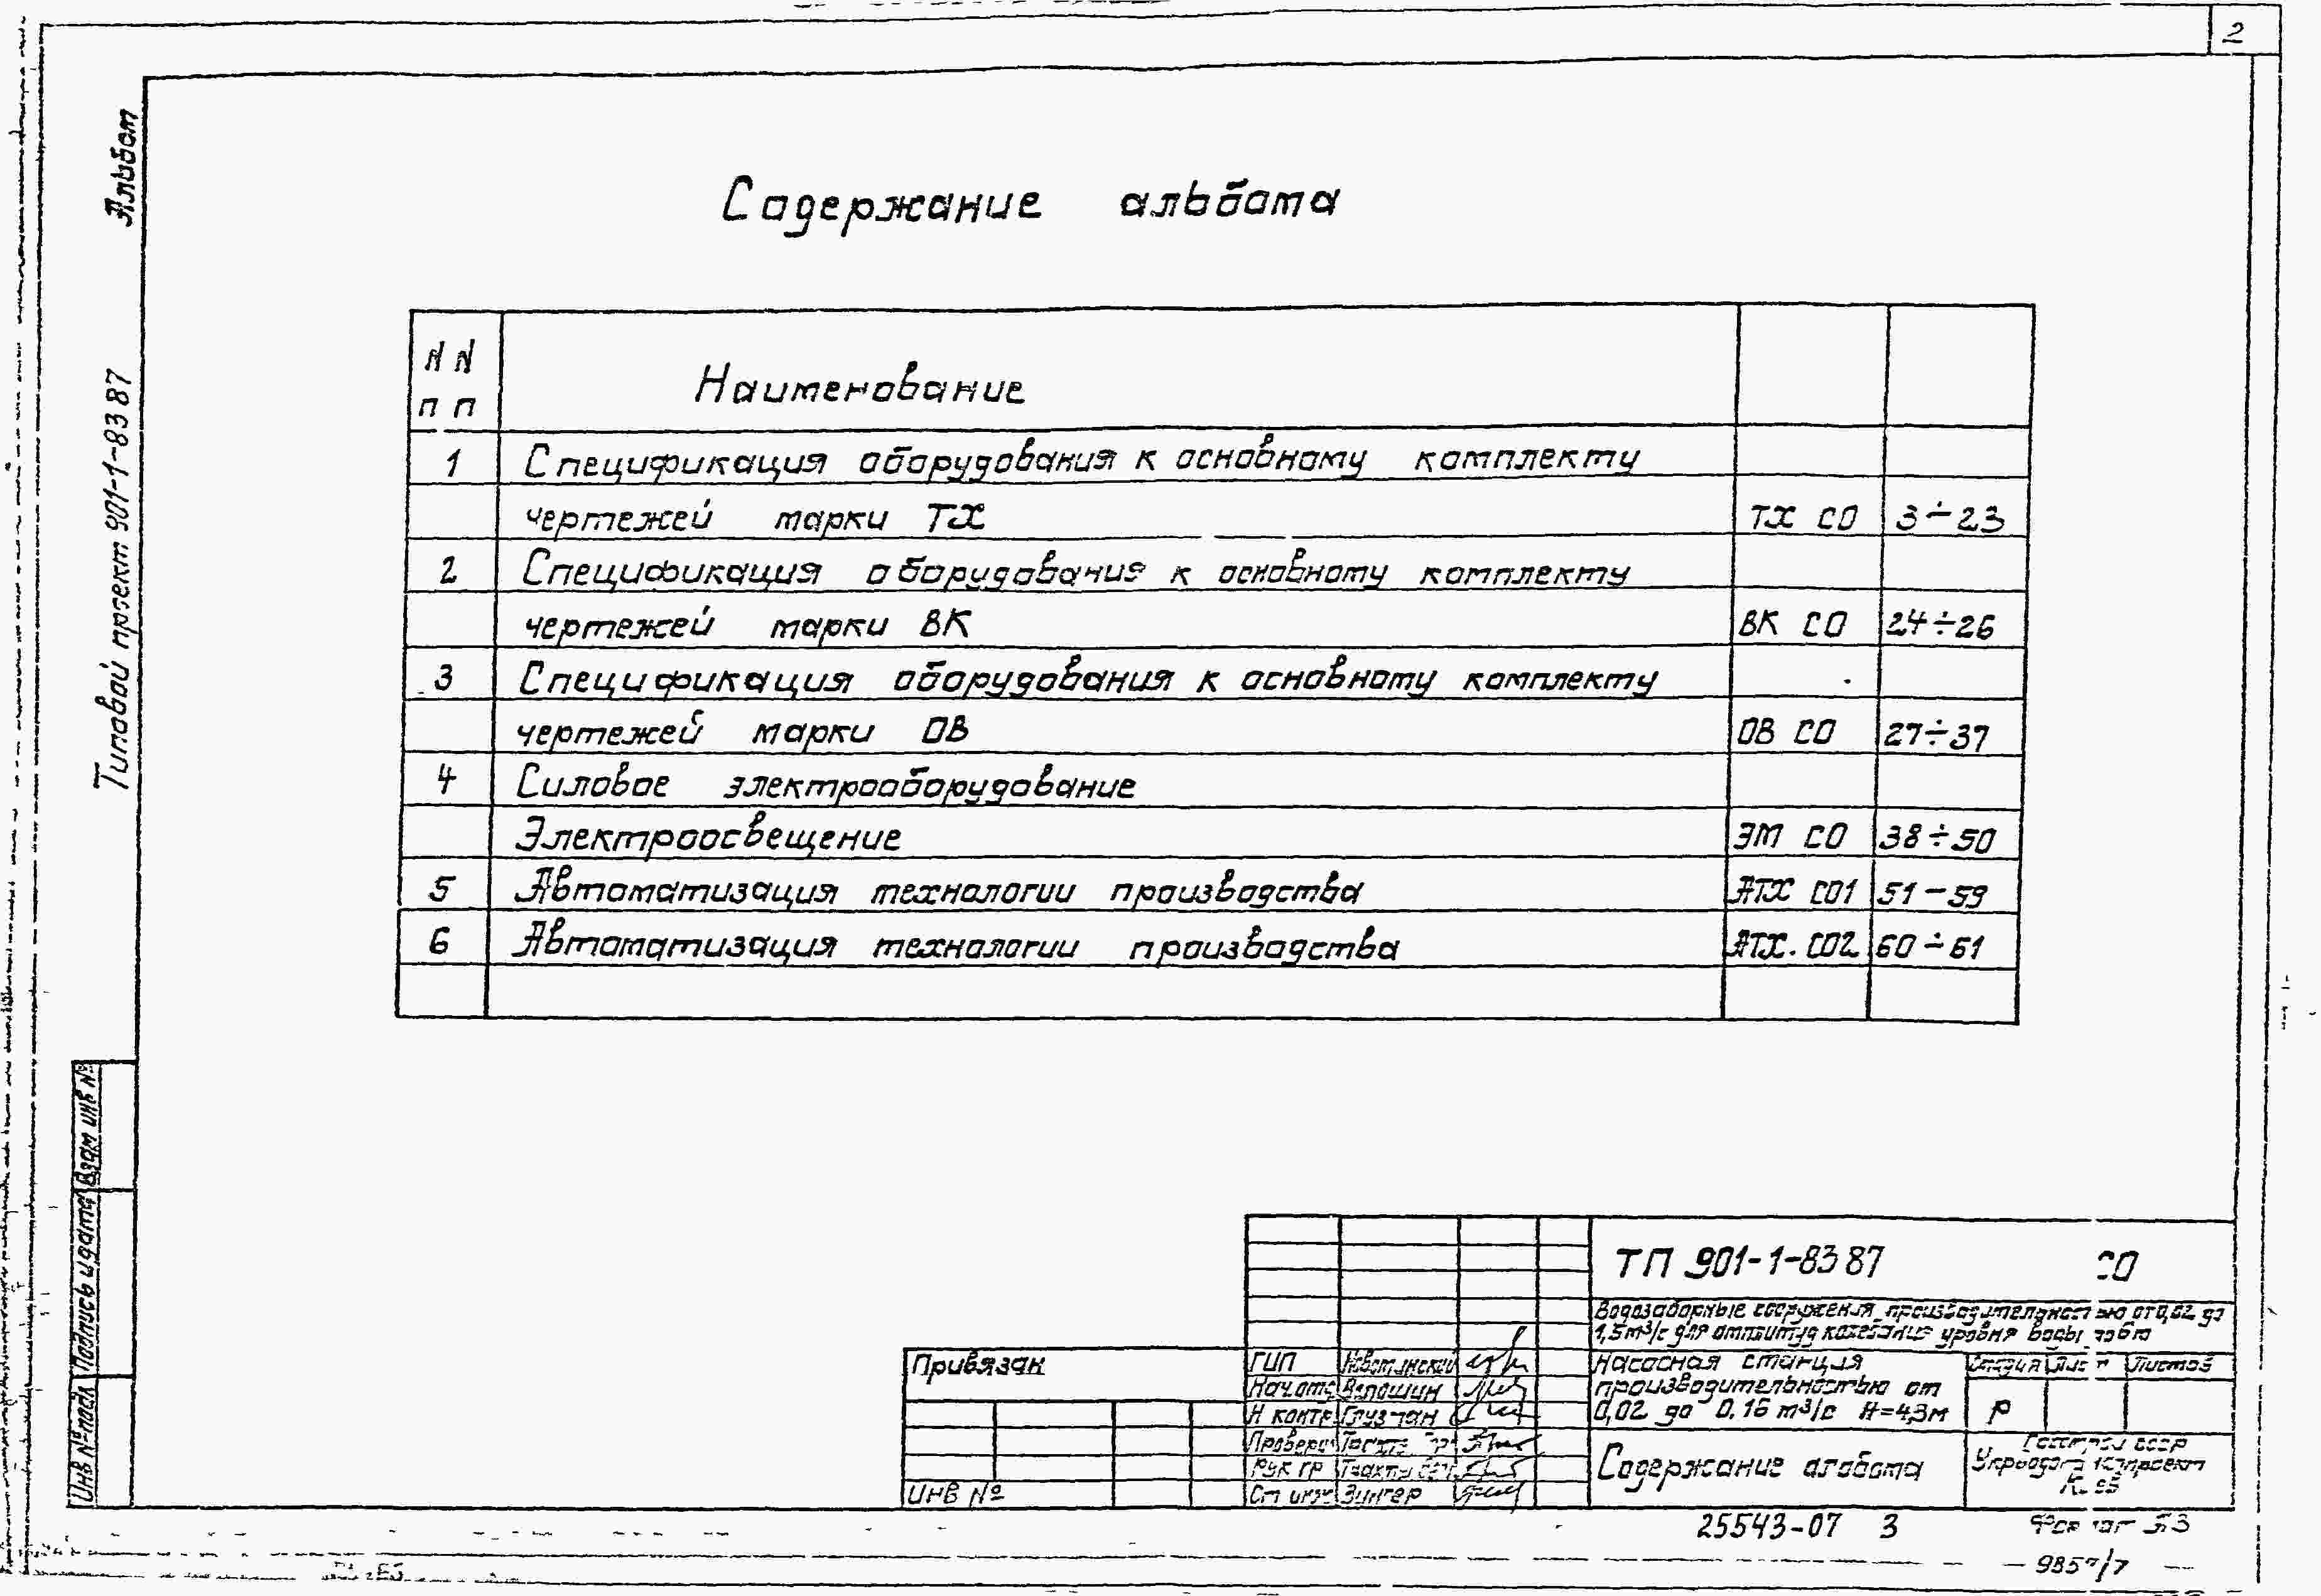 2
Альбом
Типовой проект 901-1-83 87
Содержание альбома
N N
п п
Наименование
1 Спецификация оборудования к основному комплекту
чертежей марки ТХ ТХ СО 3÷23
2 Спецификация оборудования к основному комплекту
чертежей марки ВК ВК СО 24÷26
3 Спецификация оборудования к основному комплекту
чертежей марки ОВ ОВ СО 27÷37
4 Силовое электрооборудование
Электроосвещение ЭМ СО 38÷50
5 Автоматизация технологии производства АТХ СО1 51÷59
6 Автоматизация технологии производства АТХ. СО2 60÷61
Взам инв №
Подпись и дата
Инв № подл
ТП 901-1-83 87 СО
Водозаборные сооружения производительностью от 0,02 до
1,5 м³/с для амплитуд колебания уровня воды до 6м
Насосная станция
производительностью от
0,02 до 0,16 м³/с Н=4,3м
Стадия Лист Листов
Р
Содержание альбома
Госстрой СССР
Укрводоканалпроект
Киев
Привязан
Инв №
ГИП
Нач. отд
Н контр
Провери
Рук гр
Ст инж Зингер
25543-07 3
Формат А3